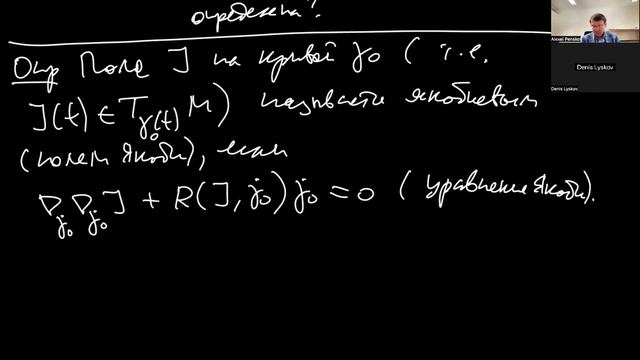 определена?
Опр Поле J на кривой γ₀ (т.е.
J(t) ∈ T_{γ₀(t)} M) называется якобиевым
(полем Якоби), если
∇_{γ̇₀} ∇_{γ̇₀} J + R(J, γ̇₀) γ̇₀ = 0 (уравнение Якоби).
Alexei Penskoi
Denis Lyskov
Denis Lyskov